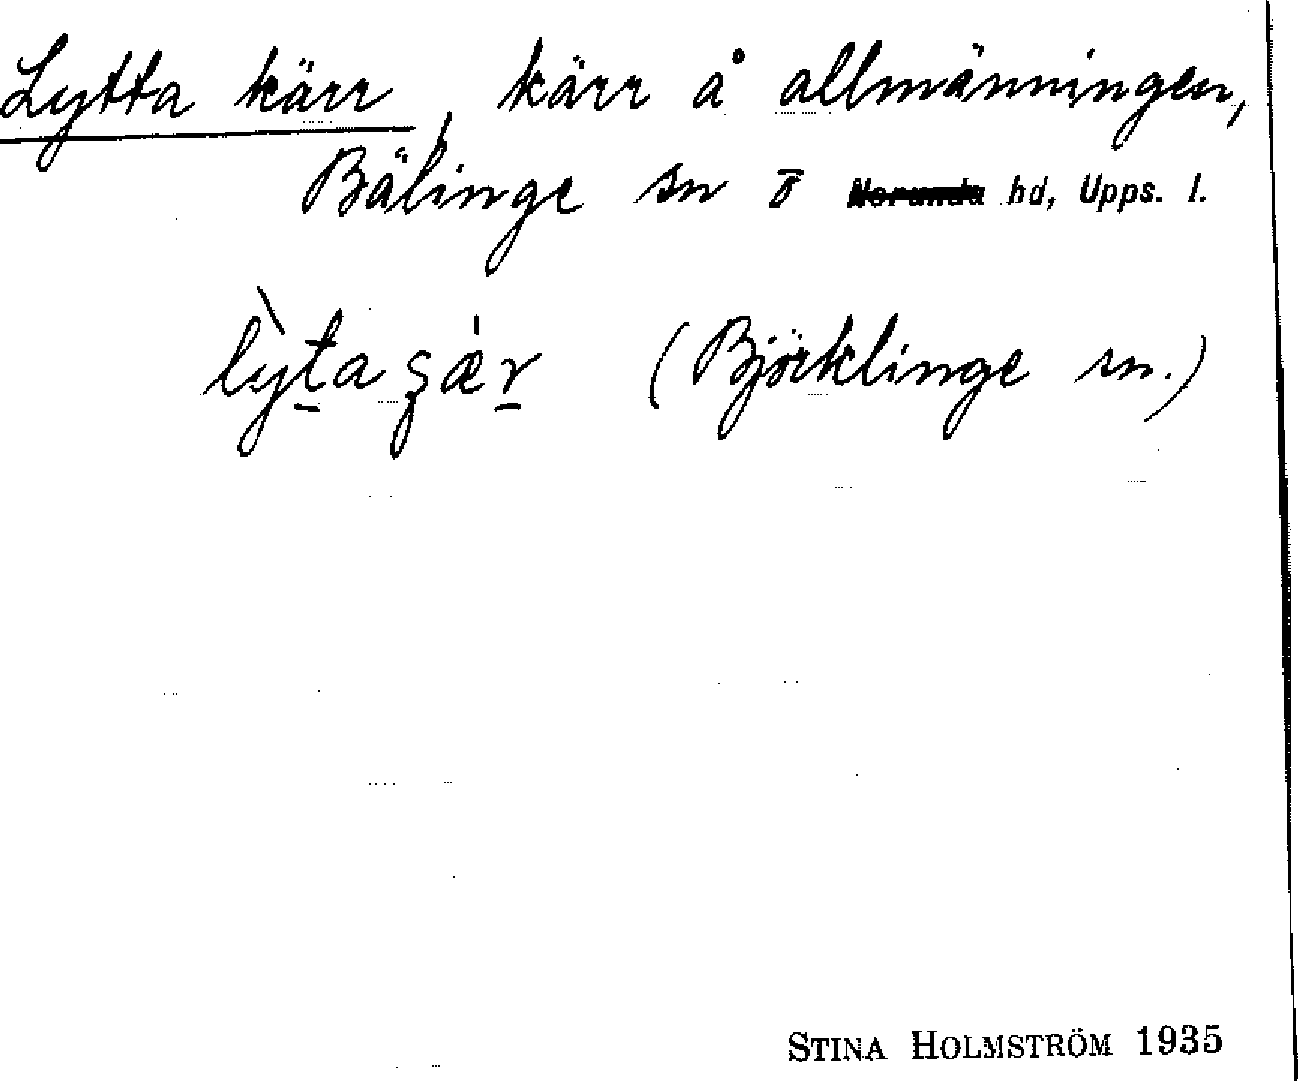 Lytta kärr, kärr å allmänningen,
Bälinge sn o̅ Norunda hd, Upps. l.
ly̖ta ʂær (Björklinge sn.)
STINA HOLMSTRÖM 1935